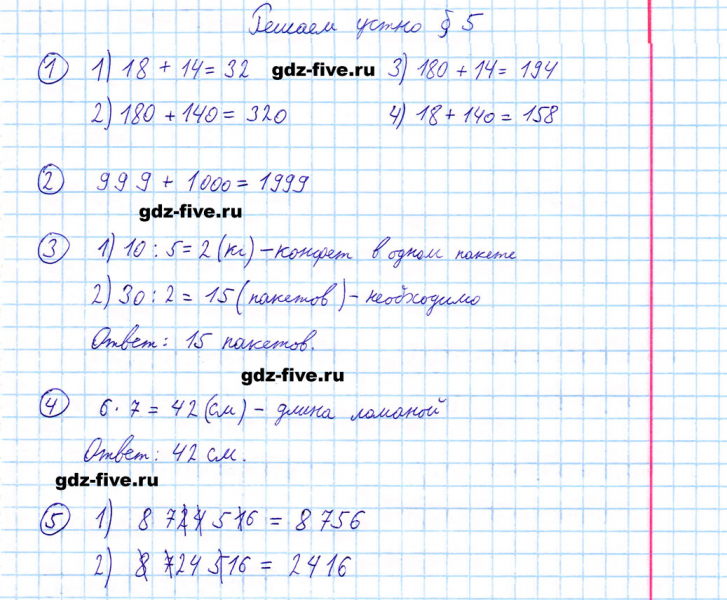 Решаем устно § 5
① 1) 18 + 14 = 32 gdz-five.ru 3) 180 + 14 = 194
2) 180 + 140 = 320 4) 18 + 140 = 158
② 999 + 1000 = 1999
gdz-five.ru
③ 1) 10 : 5 = 2 (кг) – конфет в одном пакете
2) 30 : 2 = 15 (пакетов) – необходимо
Ответ: 15 пакетов.
gdz-five.ru
④ 6 · 7 = 42 (см) – длина ломаной
Ответ: 42 см.
gdz-five.ru
⑤ 1) 8 724 516 = 8 756
2) 8 724 516 = 2416